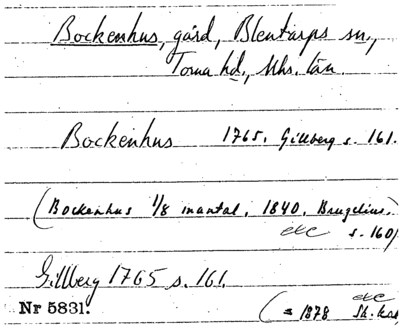 Bockenhus, gård, Blentarps sn.,
Torna hd., Mhs. län.
Bockenhus 1765. Gillberg s. 161.
(Bockenhus 1/8 mantal. 1840. Brugelius.
etc s. 160)
Gillberg 1765 s. 161.
etc
Nr 5831. (= 1878 Sk. kar